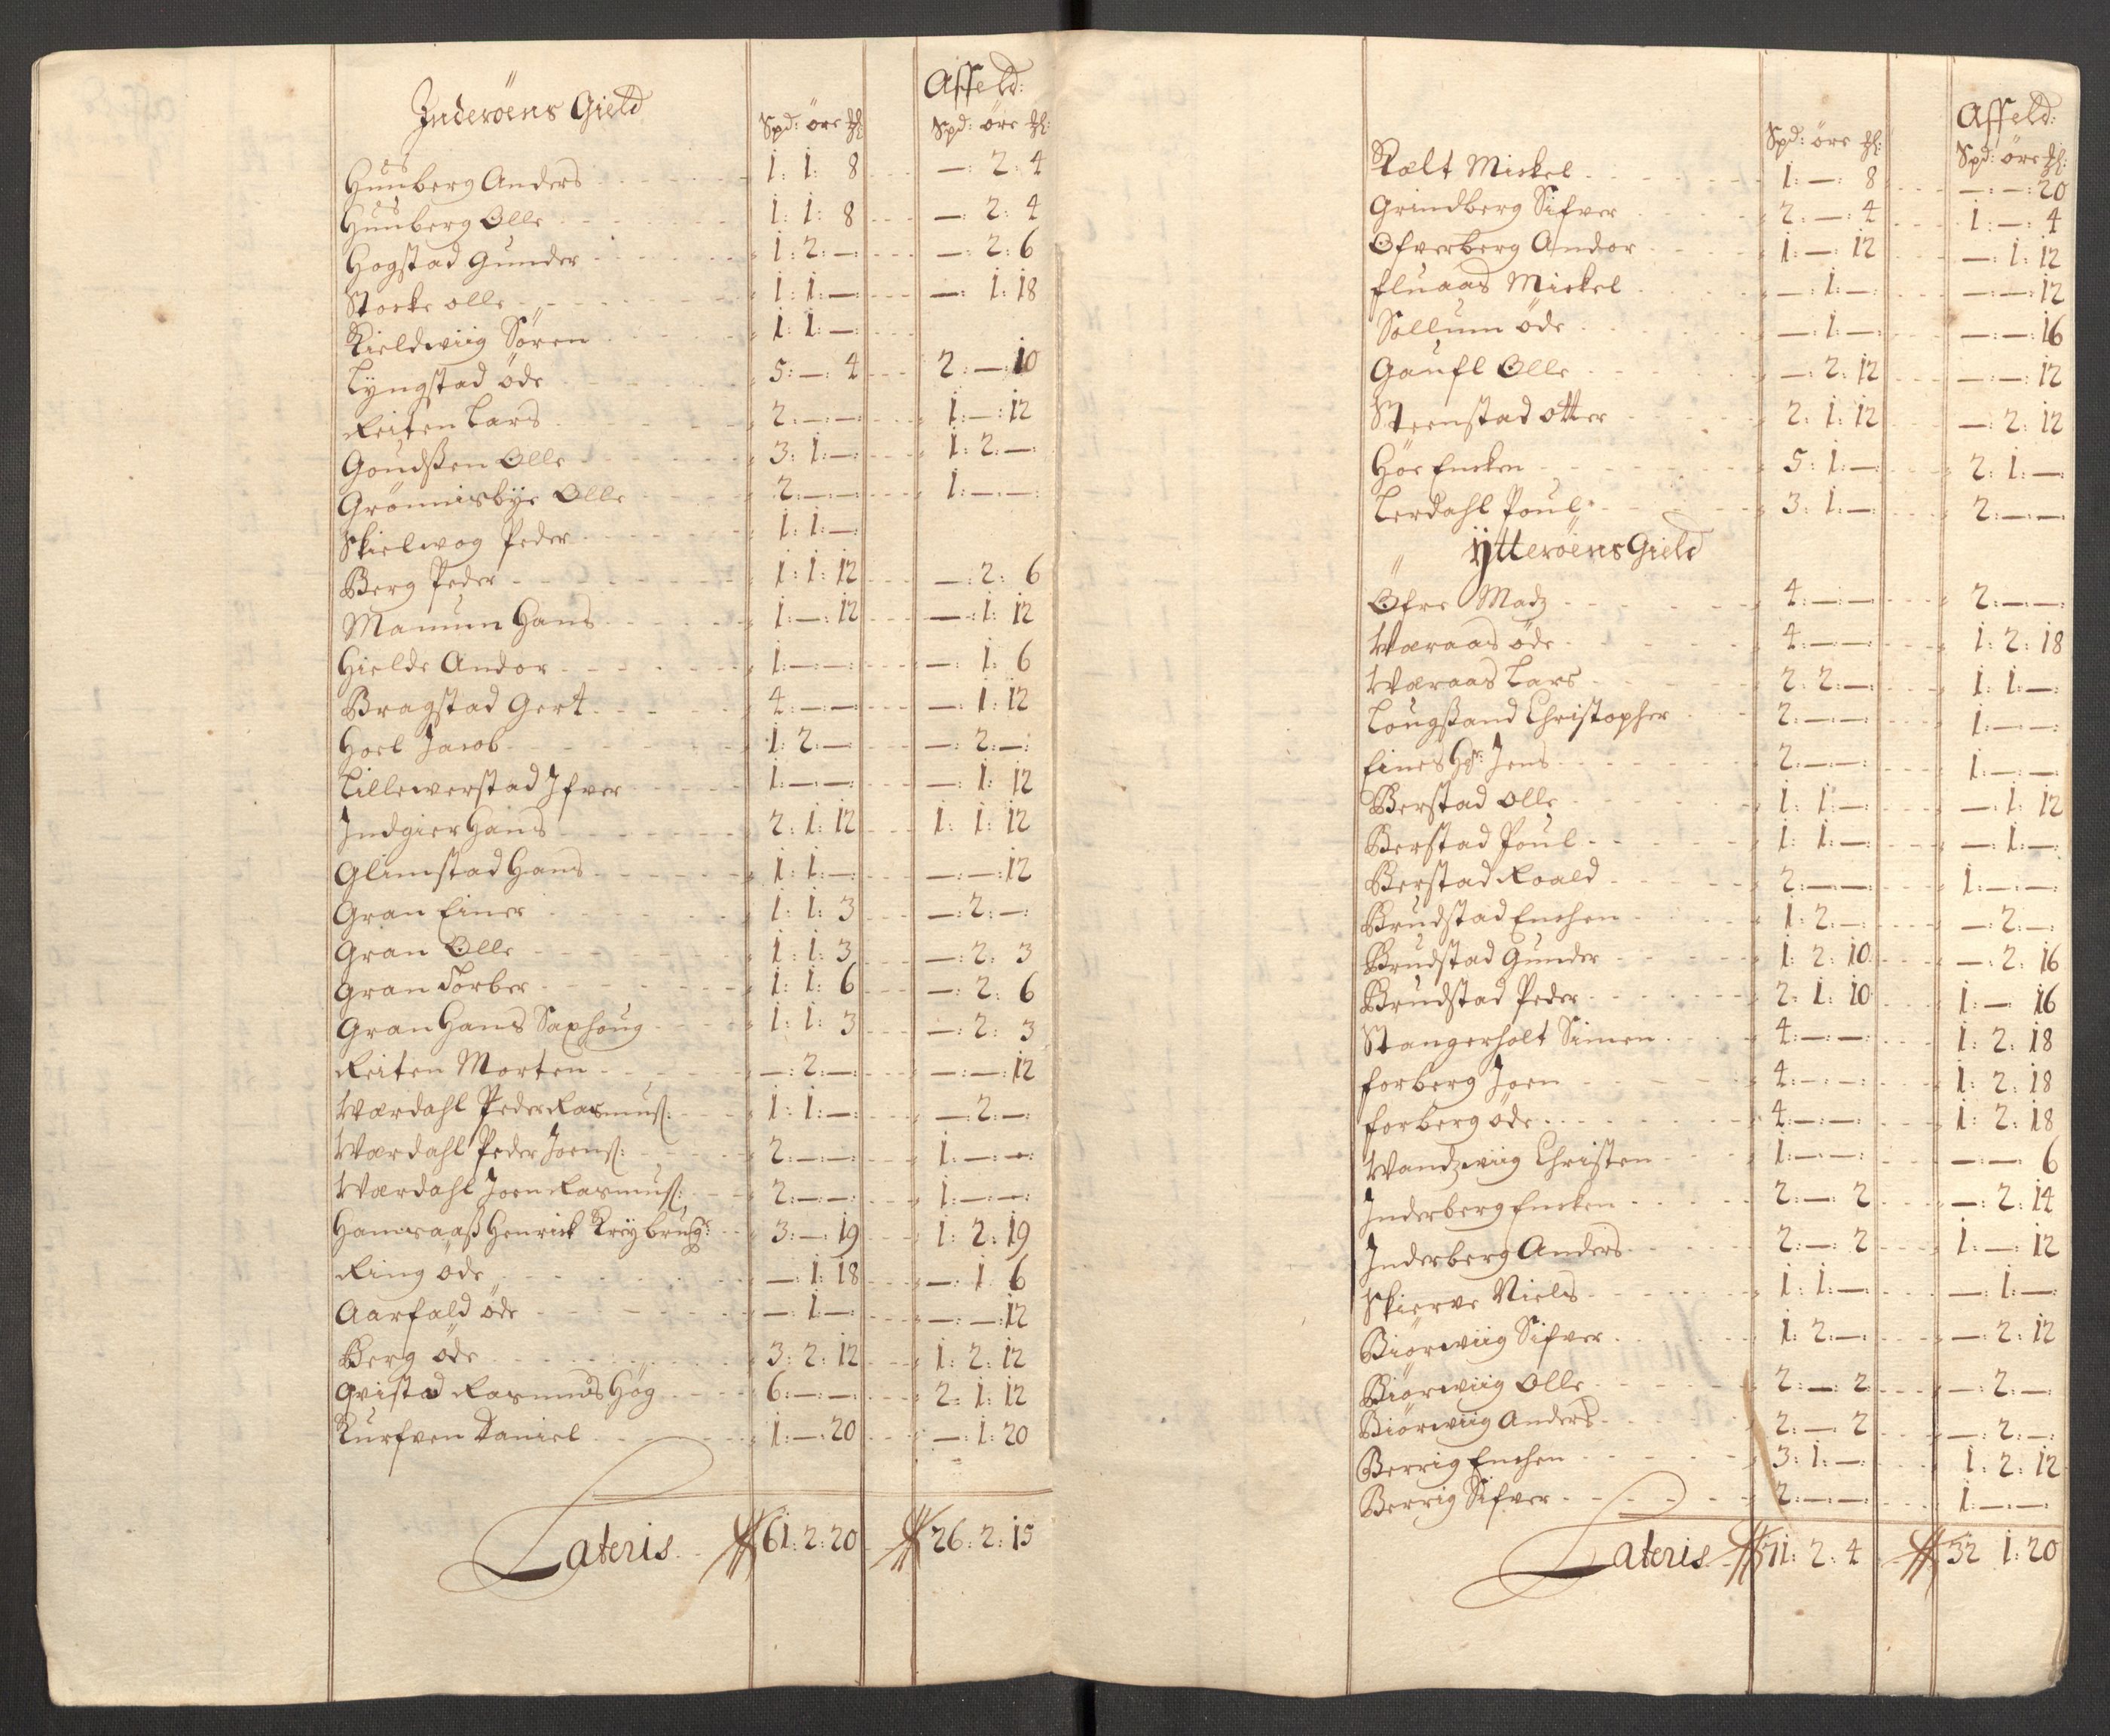 Inderöens Gield
Affeld:
Spd: öre Ms: Spd: öre Ms:
Huusberg Anders 1: 1: 8 —: 2: 4
Huusberg Olle 1: 1: 8 —: 2: 4
Hogstad Gunder 1: 2: — —: 2: 6
Storke olle 1: 1: — —: 1: 18
Kieldwiig Sören 1: 1: —
Lyngstad öde 5: —: 4 2: —: 10
Reiten Lars 2: —: — 1: —: 12
Goudßen Olle 3: 1: — 1: 2: —
Grönnisbÿe Olle 2: —: — 1: —: —
Skielwog Peder 1: 1: —
Berg Peder 1: 1: 12 —: 2: 6
Mamum Hans 1: —: 12 —: 1: 12
Hielde Andor 1: —: — —: 1: 6
Bragstad Gert 4: —: — —: 1: 12
Hoel Jacob 1: 2: — —: 2: —
Lillewerstad Ifver 1: —: — —: 1: 12
Indgier Hans 2: 1: 12 1: 1: 12
Glimstad Hans 1: 1: — —: —: 12
Gran Einer 1: 1: 3 —: 2: —
Gran Olle 1: 1: 3 —: 2: 3
Gran Torber 1: 1: 6 —: 2: 6
Gran Hans Saxhoug 1: 1: 3 —: 2: 3
Reiten Morten —: 2: — —: —: 12
Wærdahl Peder Rasmuß: 1: 1: — —: 2: —
Wærdahl Peder Joenß: 2: —: — 1: —: —
Wærdahl Joen Rasmuß: 2: —: — 1: —: —
Hamraaß Henrick 3: —: 19 1: 2: 19
Ring öde —: 1: 18 —: 1: 6
Aarfald öde —: 1: — —: —: 12
Berg öde 3: 2: 12 1: 2: 12
Qvistad Rasmuds Hög 6: —: — 2: 1: 12
Kurfven Daniel 1: —: 20 —: 1: 20
Lateris 61: 2: 20 26: 2: 15
Affeld:
Spd: öre Ms: Spd: öre Ms:
Kælt Mickel 1: —: 8 —: —: 20
Grindberg Sifver 2: —: 4 1: —: 4
Ofverberg Andor 1: —: 12 —: 1: 12
Fluaas Mickel —: 1: — —: —: 12
Sollum öde —: 1: — —: —: 16
Gaufl Olle —: 2: 12 —: —: 12
Steenstad otter 2: 1: 12 —: 2: 12
Höe Encken 5: 1: — 2: 1: —
Lerdahl Poul 3: 1: — 2: —: —
Ÿtteröens Gield
Öfre Madz 4: —: — 2: —: —
Wæraas öde 4: —: — 1: 2: 18
Wæraas Lars 2: 2: — 1: 1: —
Lougsand Christopher 2: —: — 1: —: —
Eines Hr: Jens 2: —: — 1: —: —
Berstad olle 1: 1: — —: 1: 12
Berstad Poul 1: 1: — —: 1: —
Berstad Roald 2: —: — 1: —: —
Brudstad Enchen 1: 2: — —: 2: —
Brudstad Gunder 1: 2: 10 —: 2: 16
Brudstad Peder 2: 1: 10 1: —: 16
Stangerholt Simen 4: —: — 1: 2: 18
Forberg Joen 4: —: — 1: 2: 18
Forberg öde 4: —: — 1: 2: 18
Wandzwiig Christen 1: —: — —: —: 6
Inderberg Encken 2: —: 2 —: 2: 14
Inderberg Anders 2: —: 2 1: —: 12
Skierve Niels 1: 1: — —: 1: —
Biörwiig Sifver 1: 2: — —: 2: 12
Biörwiig Olle 2: —: 2 —: 2: —
Biörwiig Anders 2: —: 2 —: 2: —
Berrig Enchen 3: 1: — 1: 2: 12
Berrig Sifver 2: —: — 1: —: —
Lateris 71: 2: 4 32 1: 20